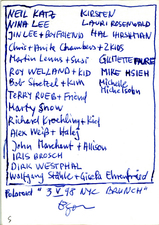 NEIL KATZ KIRSTEN
NINA LEE LAURI ROSENWALD
JIN LEE + BOYFRIEND HAL HIRSHMAN
Chris + Anite Chambers + 2 KIDS
Martin Lenus + Susi GILLETTE
ROY WEILAND + KID MIKE HSIEH
Bob Stoetzel + Kim Michelle
TERRY RUEB + Friend Michelsohn
Marty Snow
Richard Kroehling + Kid
Alex Weiß + Haley
John Marchant + Allison
IRIS BROSCH
DIRK WESTPHAL
Wolfgang Stähle + Gisela Ehrenfried
Polaroid "3 V 98 NYC BRUNCH"
S